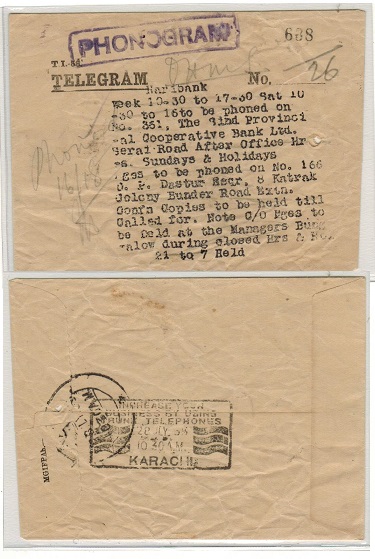 PHONOGRAM
638
T.I.-84.
TELEGRAM No.
26
Haribank
Week 10-30 to 17-30 Sat 10
-30 to 16to be phoned on
No. 361, The Sind Provinci
-al Cooperative Bank Ltd.
Serai Road After Office Hr
-s. Sundays & Holidays
Mges to be phoned on No. 166
Dastur Esqr. 8 Katrak
Colony Bunder Road Extn.
Conf: Copies to be held till
Called for. Note C/O Mges to
be held at the Managers Bung
-alow during closed Hrs &
21 to 7 Held
INCREASE YOUR
BUSINESS BY USING
TRUNK TELEPHONES
KARACHI